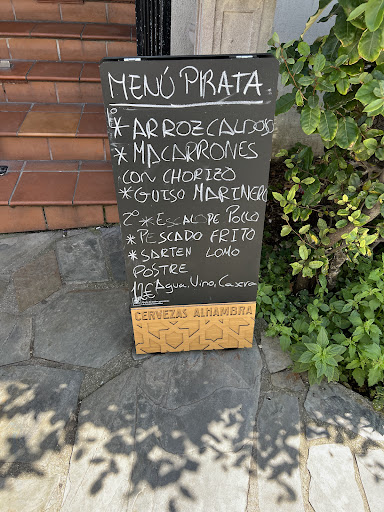 MENÚ PIRATA
1º
* ARROZ CALDOSO
* MACARRONES
CON CHORIZO
* GUISO MARINERO
2º * ESCALOPE POLLO
* PESCADO FRITO
* SARTEN LOMO
POSTRE
Agua, Vino,
CERVEZAS ALHAMBRA